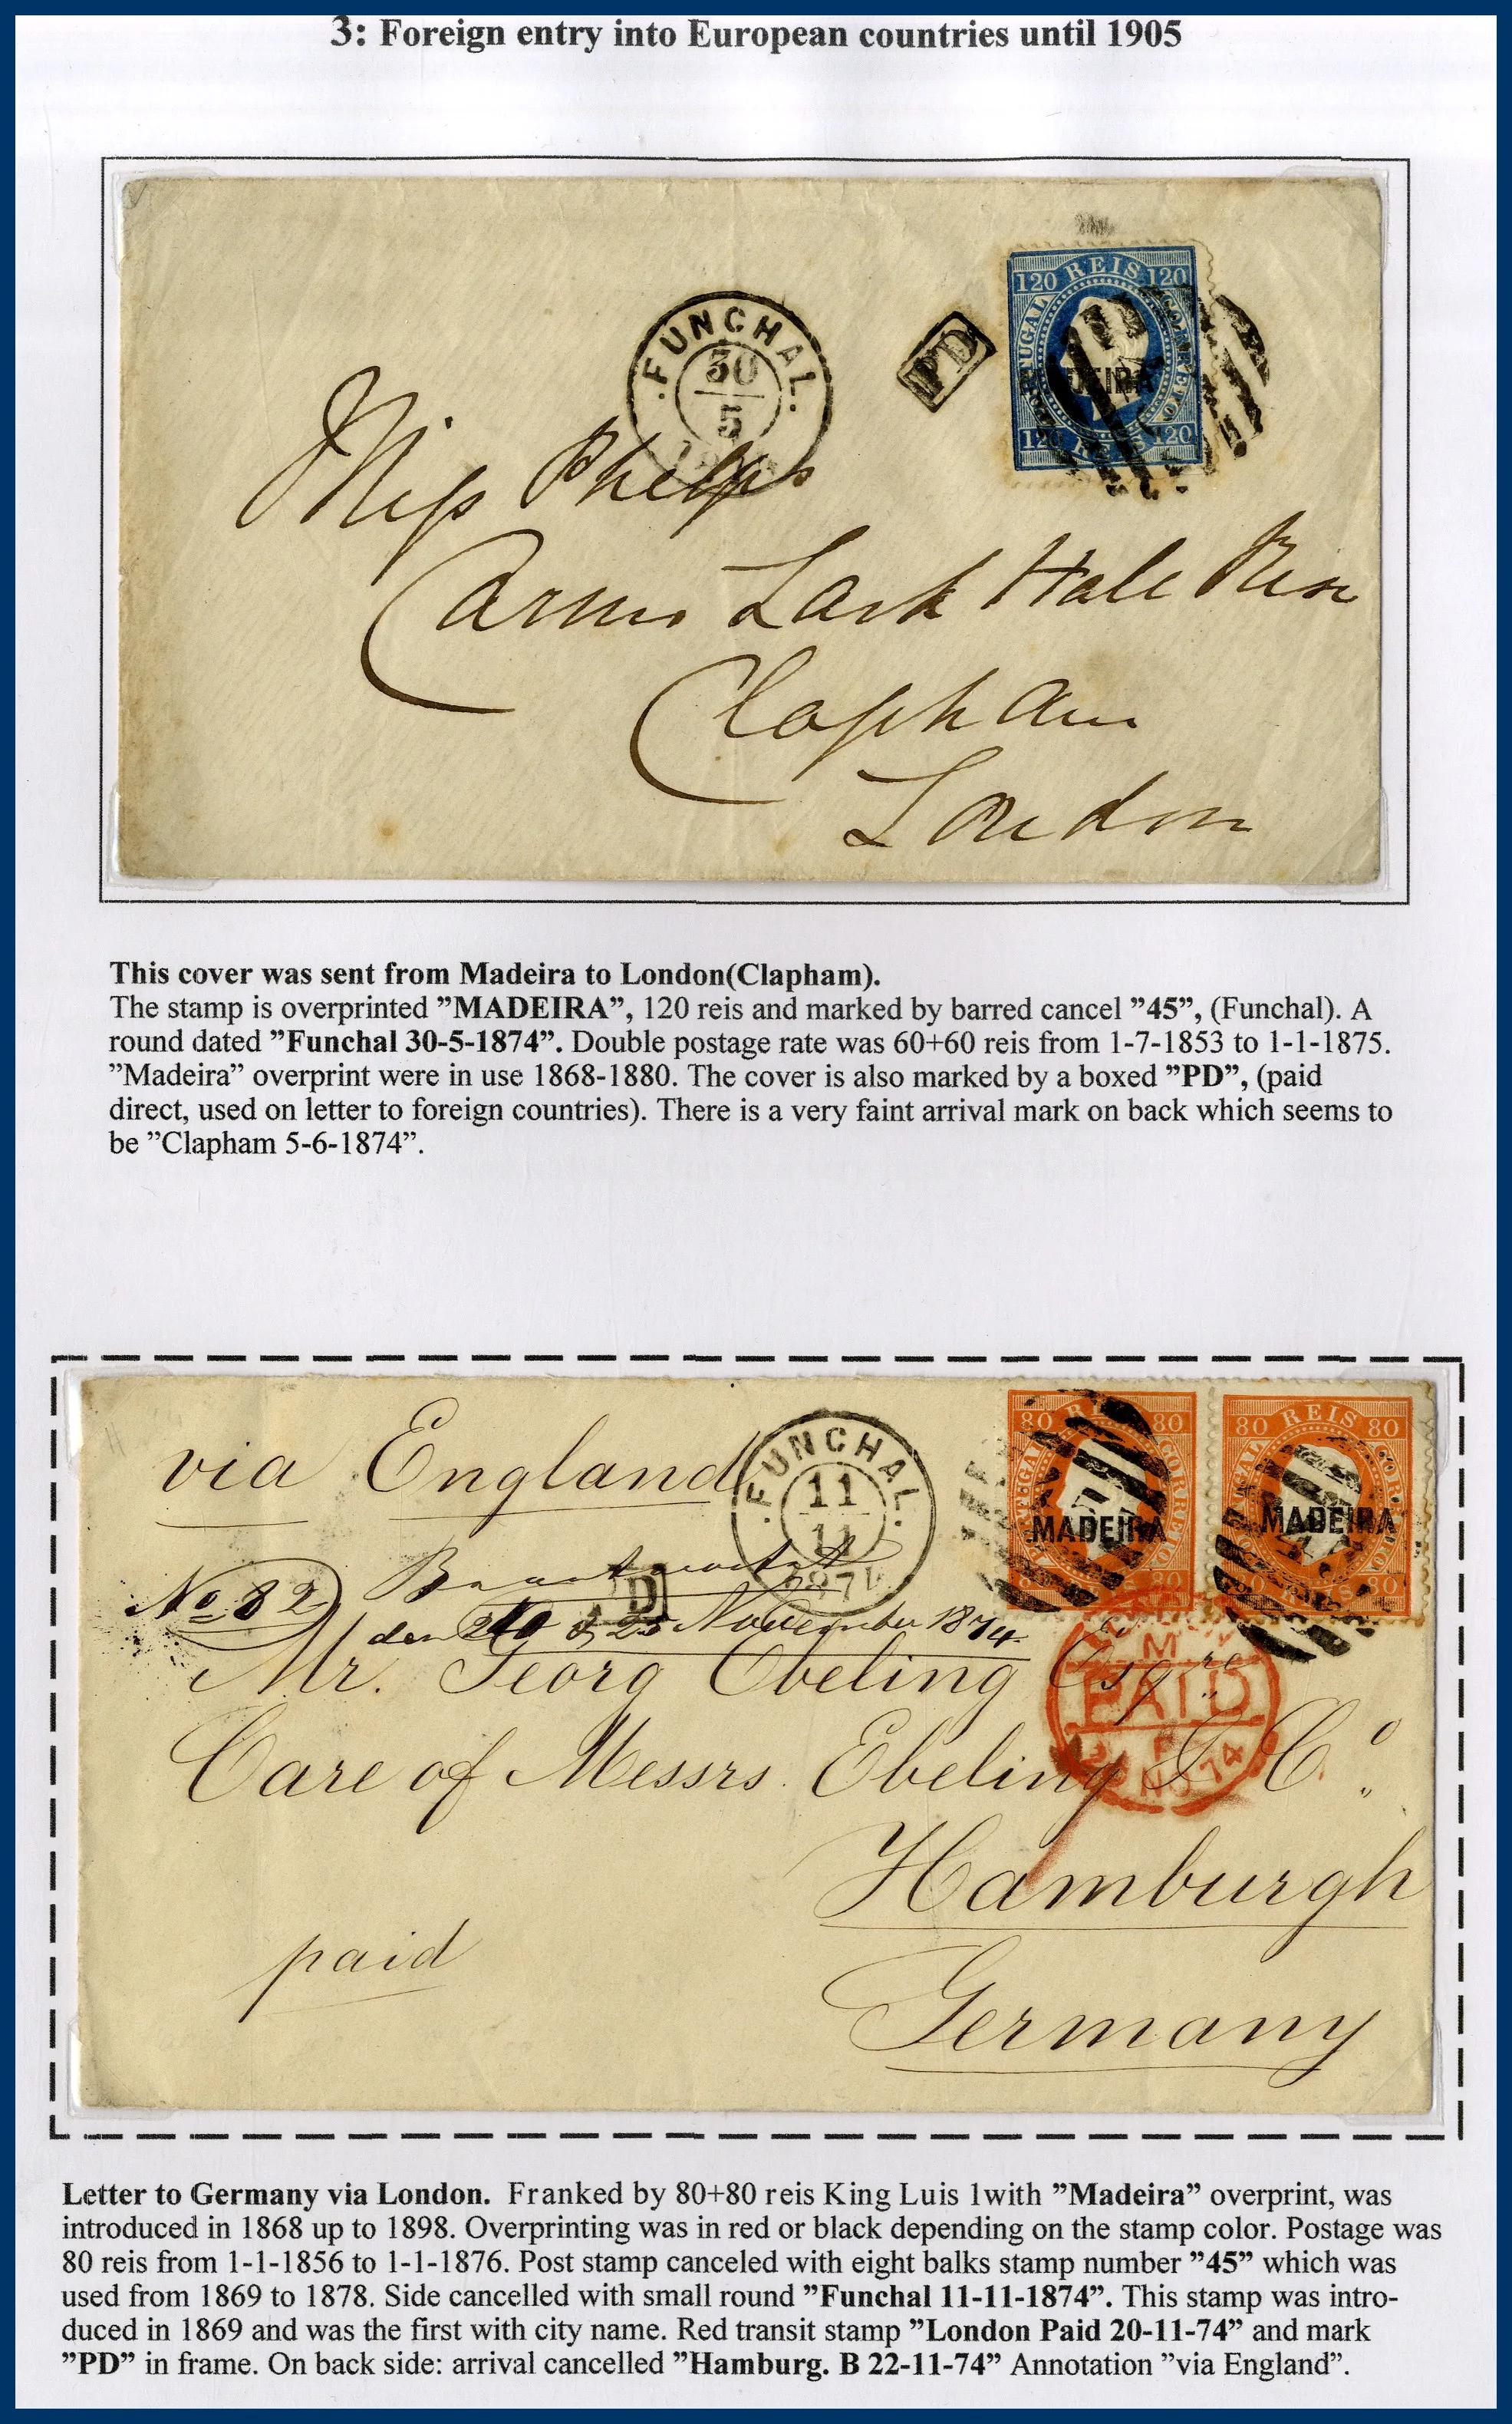 3: Foreign entry into European countries until 1905
120 REIS 120
PORTUGAL
CORREIO
MADEIRA
120 REIS 120
PD
FUNCHAL
30
5
Miss Phelps
Lark Hall Rise
Clapham
London
This cover was sent from Madeira to London(Clapham).
The stamp is overprinted ”MADEIRA”, 120 reis and marked by barred cancel ”45”, (Funchal). A
round dated ”Funchal 30-5-1874”. Double postage rate was 60+60 reis from 1-7-1853 to 1-1-1875.
”Madeira” overprint were in use 1868-1880. The cover is also marked by a boxed ”PD”, (paid
direct, used on letter to foreign countries). There is a very faint arrival mark on back which seems to
be ”Clapham 5-6-1874”.
via England
FUNCHAL
11
11
1874
80 REIS 80
PORTUGAL
CORREIO
MADEIRA
80 REIS 80
PORTUGAL
CORREIO
MADEIRA
No 82
PD
den 20 & 25 November 1874
Mr. Georg Ebeling Esqre
PAID
NO 74
Care of Messrs. Ebeling & Co.
Hamburgh
paid
Germany
Letter to Germany via London. Franked by 80+80 reis King Luis 1with ”Madeira” overprint, was
introduced in 1868 up to 1898. Overprinting was in red or black depending on the stamp color. Postage was
80 reis from 1-1-1856 to 1-1-1876. Post stamp canceled with eight balks stamp number ”45” which was
used from 1869 to 1878. Side cancelled with small round ”Funchal 11-11-1874”. This stamp was intro-
duced in 1869 and was the first with city name. Red transit stamp ”London Paid 20-11-74” and mark
”PD” in frame. On back side: arrival cancelled ”Hamburg. B 22-11-74” Annotation ”via England”.